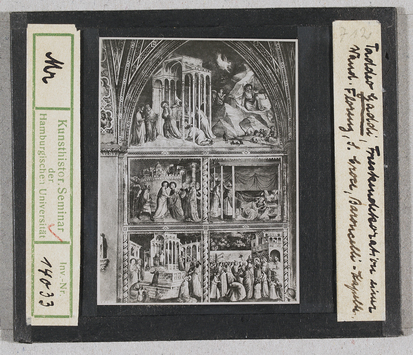 Mr
Kunsthistor. Seminar
der
Hamburgischen Universität
Inv.-Nr.
14033
712
Taddeo Gaddi, Freskendekoration einer
Wand. Florenz, S. Croce, Baroncelli-Kapelle.